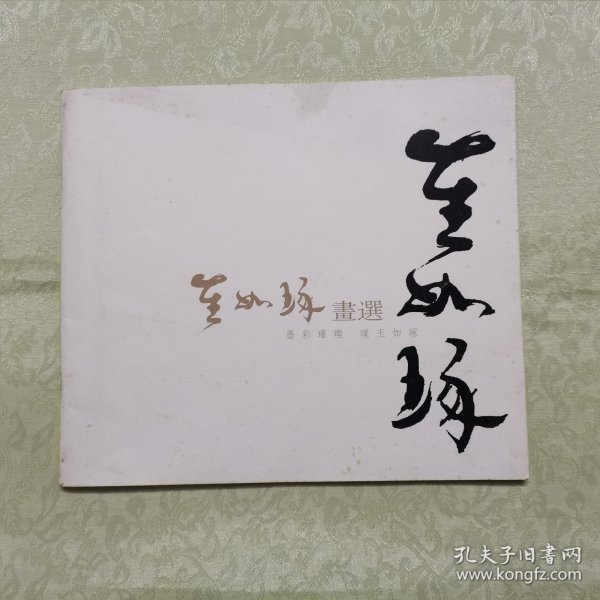 崔如琢
崔如琢畫選
墨彩璀璨 璞玉如琢
孔夫子旧书网
www.kongfz.com